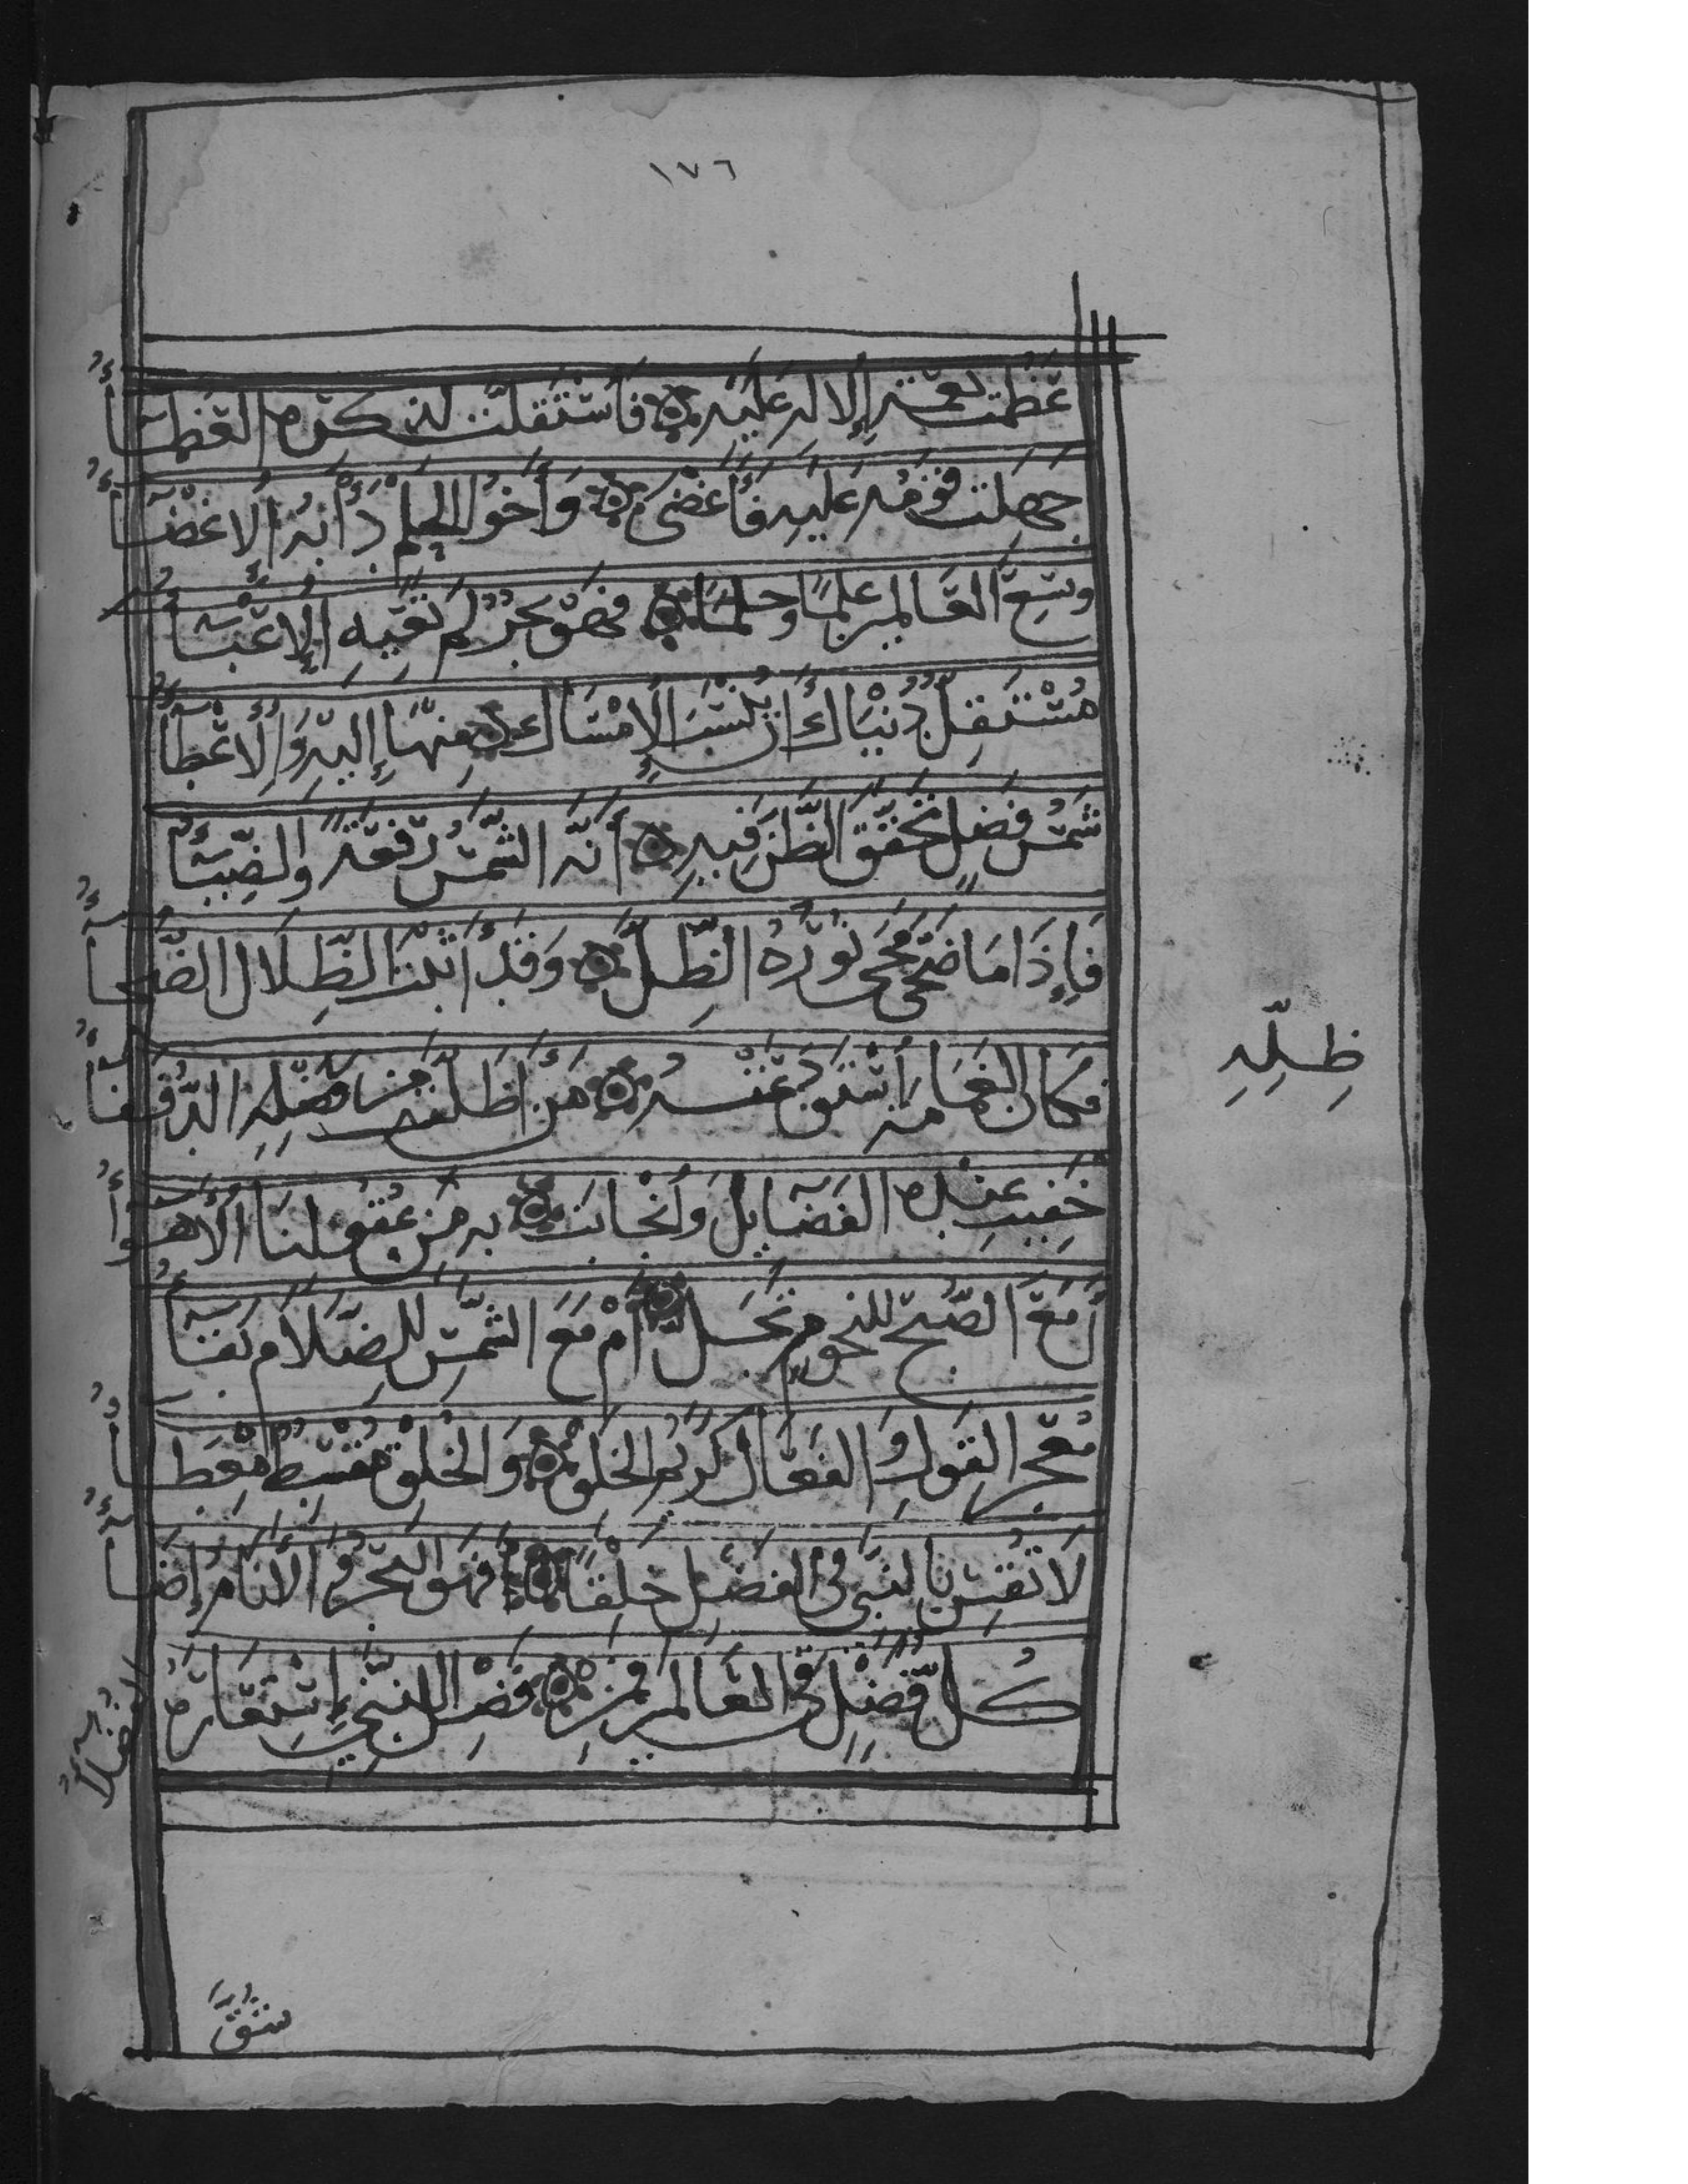 ١٧٦
عَظُمَتْ نِعْمَةُ الْإِلٰهِ عَلَيْهِ ۞ فَاسْتَقَلَّتْ لِذِكْرِهِ الْعُظَمَآءُ
جَهِلَتْ قَوْمُهُ عَلَيْهِ فَأَغْضَى ۞ وَأَخُو الْحِلْمِ دَأْبُهُ الْإِغْضَآءُ
وَسِعَ الْعَالَمِينَ عِلْمًا وَحِلْمًا ۞ فَهُوَ بَحْرٌ لَمْ تُعْيِهِ الْأَعْبَآءُ
مُسْتَقِلٌّ دُنْيَاكَ أَنْ يُنْسَبَ الْإِمْسَاكُ ۞ مِنْهَا إِلَيْهِ وَالْإِعْطَآءُ
شَمْسُ فَضْلٍ تَحَقَّقَ الظَّنُّ فِيهِ ۞ أَنَّهُ الشَّمْسُ رِفْعَةً وَالضِّيَآءُ
فَإِذَا مَا ضَحَى مَحَى نُورُهُ الظِّلَّ ۞ وَقَدْ أَثْبَتَ الظِّلَالَ الضَّحَآءُ
فَكَانَ الْغَمَامَةَ اسْتَوْدَعَتْهُ ۞ مَنْ أَظَلَّتْ مِنْ ظِلِّهِ الدُّفَفَآءُ
ظِلِّهِ
خَفِيَتْ عِنْدَهُ الْفَضَآئِلُ وَانْجَابَتْ ۞ بِهِ مِنْ عُقُولِنَا الْأَهْوَآءُ
أَمَعَ الصُّبْحِ لِلنُّجُومِ تَجَلٍّ ۞ أَمْ مَعَ الشَّمْسِ لِلضَّلَامِ بَقَآءُ
مُعْجِزُ الْقَوْلِ وَالْفَعَالِ كَرِيمُ الْخَلْقِ ۞ وَالْخُلْقِ مُقْسِطٌ مِعْطَآءُ
لَا تَقِسْ بِالنَّبِيِّ فِي الْفَضْلِ خَلْقًا ۞ فَهُوَ الْبَحْرُ وَالْأَنَامُ إِضَآءُ
كُلُّ فَضْلٍ فِي الْعَالَمِينَ فَمِنْ ۞ فَضْلِ النَّبِيِّ اسْتَعَارَهُ الْفُضَلَآءُ
شُقَّ